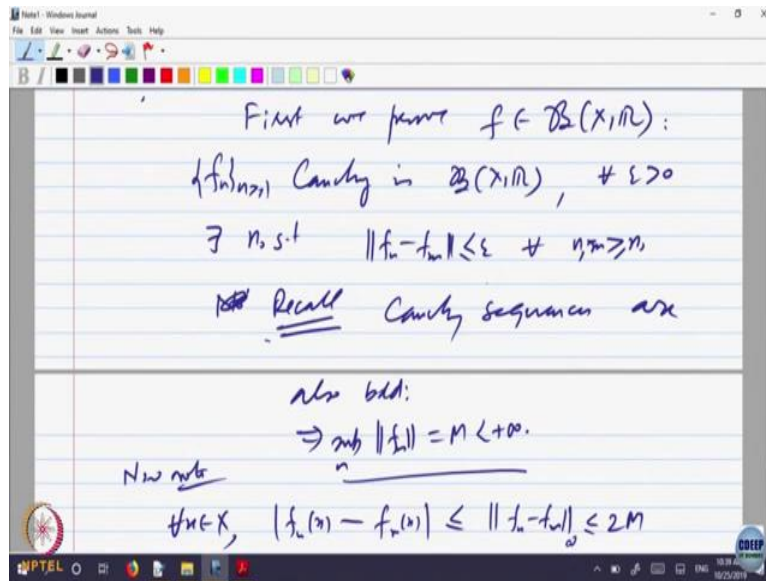 Note1 - Windows Journal
File Edit View Insert Actions Tools Help
B I
First we prove f ∈ B(X,ℝ):
{fₙ}ₙ≥₁ Cauchy in B(X,ℝ), ∀ ε>0
∃ n₀ s.t ‖fₙ-fₘ‖≤ε ∀ n,m≥n₀
Recall Cauchy sequences are
also bdd:
⇒ supₙ ‖fₙ‖ = M < +∞.
Now note
∀x∈X, |fₙ(x) - fₘ(x)| ≤ ‖fₙ-fₘ‖∞ ≤ 2M
NPTEL
CDEEP
ENG
10/25/2019